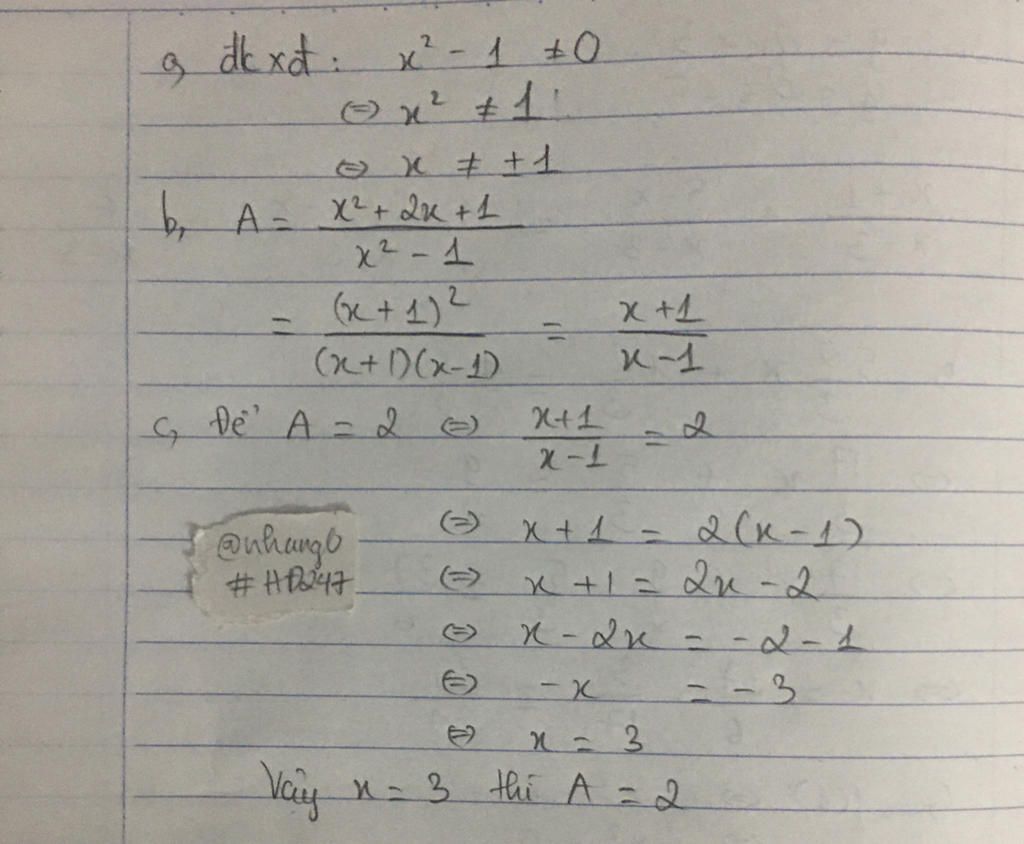 a, đkxđ: x² - 1 ≠ 0
⇔ x² ≠ 1
⇔ x ≠ ±1
b, A = (x² + 2x + 1)/(x² - 1)
= (x + 1)²/((x + 1)(x - 1)) = (x + 1)/(x - 1)
c, Để A = 2 ⇔ (x + 1)/(x - 1) = 2
⇔ x + 1 = 2(x - 1)
⇔ x + 1 = 2x - 2
⇔ x - 2x = -2 - 1
⇔ -x = -3
⇔ x = 3
Vậy x = 3 thì A = 2
#HD247